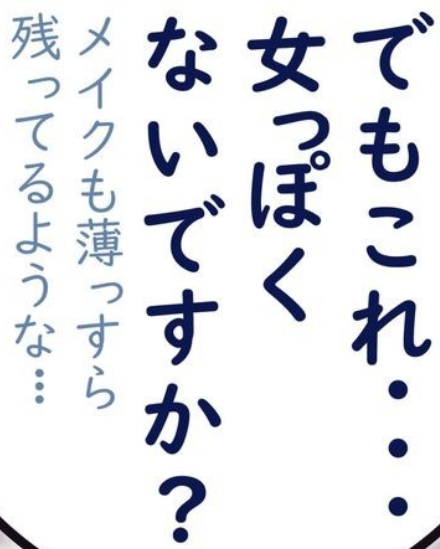 でもこれ・・・
女っぽく
ないですか？
メイクも薄っすら
残ってるような…